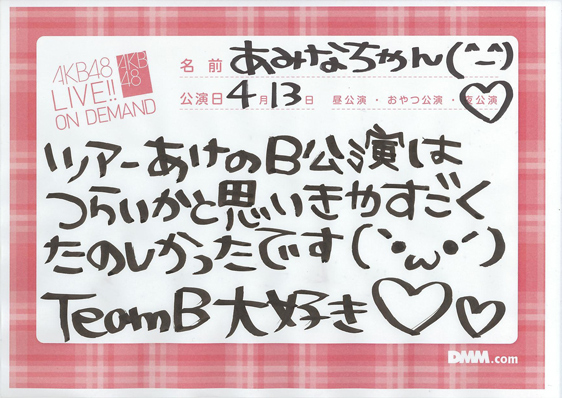 AKB48
LIVE!!
ON DEMAND
AKB
48
名前 あみなちゃん(^ー^)
公演日 4月13日 昼公演・おやつ公演・夜公演
ツアーあけのB公演は
つらいかと思いきやすごく
たのしかったです(`・ω・´)
TeamB大好き♡♡
DMM.com